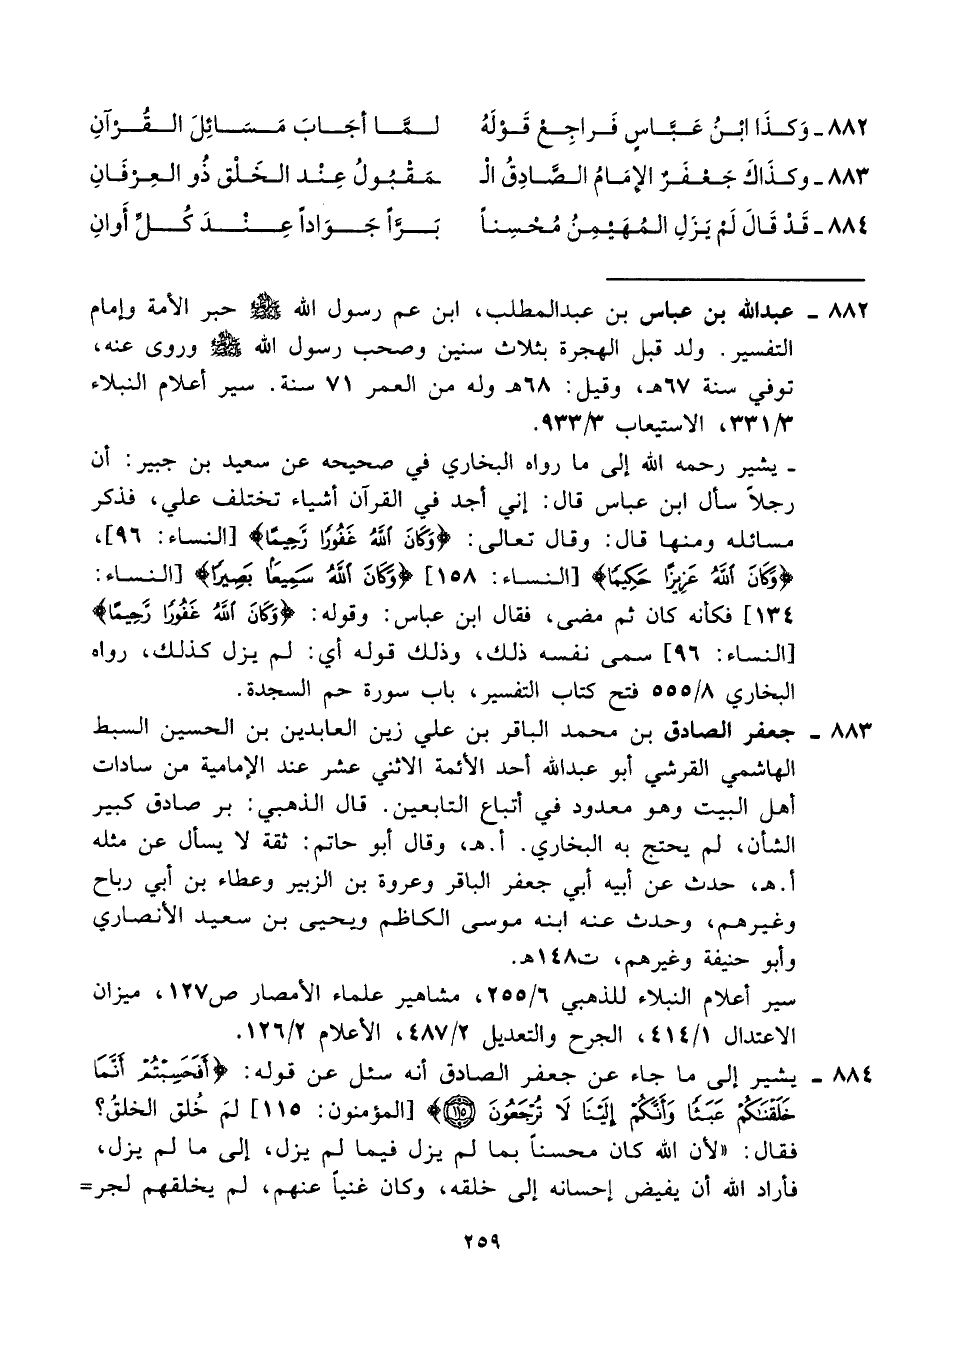 ٨٨٢ ـ وَكَذَا ابْنُ عَبَّاسٍ فَرَاجِعْ قَوْلَهُ لَمَّا أجَابَ مَسَائِلَ القُرْآنِ
٨٨٣ ـ وكَذَاكَ جَعْفَرٌ الإمَامُ الصَّادِقُ الْـ ـمَقْبُولُ عِنْد الخَلْقِ ذُو العِرْفَانِ
٨٨٤ ـ قَدْ قَالَ لَمْ يَزَلِ المُهَيْمِنُ مُحْسِناً بَرَّاً جَوَاداً عِنْدَ كُلِّ أَوانِ
٨٨٢ ـ عبدالله بن عباس بن عبدالمطلب، ابن عم رسول الله ﷺ حبر الأمة وإمام
التفسير. ولد قبل الهجرة بثلاث سنين وصحب رسول الله ﷺ وروى عنه،
توفي سنة ٦٧هـ، وقيل: ٦٨هـ وله من العمر ٧١ سنة. سير أعلام النبلاء
٣٣١/٣، الاستيعاب ٩٣٣/٣.
ـ يشير رحمه الله إلى ما رواه البخاري في صحيحه عن سعيد بن جبير: أن
رجلاً سأل ابن عباس قال: إني أجد في القرآن أشياء تختلف علي، فذكر
مسائله ومنها قال: وقال تعالى: ﴿وَكَانَ اللَّهُ غَفُورًا رَّحِيمًا﴾ [النساء: ٩٦]،
﴿وَكَانَ اللَّهُ عَزِيزًا حَكِيمًا﴾ [النساء: ١٥٨] ﴿وَكَانَ اللَّهُ سَمِيعًا بَصِيرًا﴾ [النساء:
١٣٤] فكأنه كان ثم مضى، فقال ابن عباس: وقوله: ﴿وَكَانَ اللَّهُ غَفُورًا رَّحِيمًا﴾
[النساء: ٩٦] سمى نفسه ذلك، وذلك قوله أي: لم يزل كذلك، رواه
البخاري ٥٥٥/٨ فتح كتاب التفسير، باب سورة حم السجدة.
٨٨٣ ـ جعفر الصادق بن محمد الباقر بن علي زين العابدين بن الحسين السبط
الهاشمي القرشي أبو عبدالله أحد الأئمة الاثني عشر عند الإمامية من سادات
أهل البيت وهو معدود في أتباع التابعين. قال الذهبي: بر صادق كبير
الشأن، لم يحتج به البخاري. أ.هـ، وقال أبو حاتم: ثقة لا يسأل عن مثله
أ.هـ، حدث عن أبيه أبي جعفر الباقر وعروة بن الزبير وعطاء بن أبي رباح
وغيرهم، وحدث عنه ابنه موسى الكاظم ويحيى بن سعيد الأنصاري
وأبو حنيفة وغيرهم، ت١٤٨هـ.
سير أعلام النبلاء للذهبي ٢٥٥/٦، مشاهير علماء الأمصار ص١٢٧، ميزان
الاعتدال ٤١٤/١، الجرح والتعديل ٤٨٧/٢، الأعلام ١٢٦/٢.
٨٨٤ ـ يشير إلى ما جاء عن جعفر الصادق أنه سئل عن قوله: ﴿أَفَحَسِبْتُمْ أَنَّمَا
خَلَقْنَاكُمْ عَبَثًا وَأَنَّكُمْ إِلَيْنَا لَا تُرْجَعُونَ ١١٥﴾ [المؤمنون: ١١٥] لمَ خُلق الخلقُ؟
فقال: «لأن الله كان محسناً بما لم يزل فيما لم يزل، إلى ما لم يزل،
فأراد الله أن يفيض إحسانه إلى خلقه، وكان غنياً عنهم، لم يخلقهم لجر=
٢٥٩